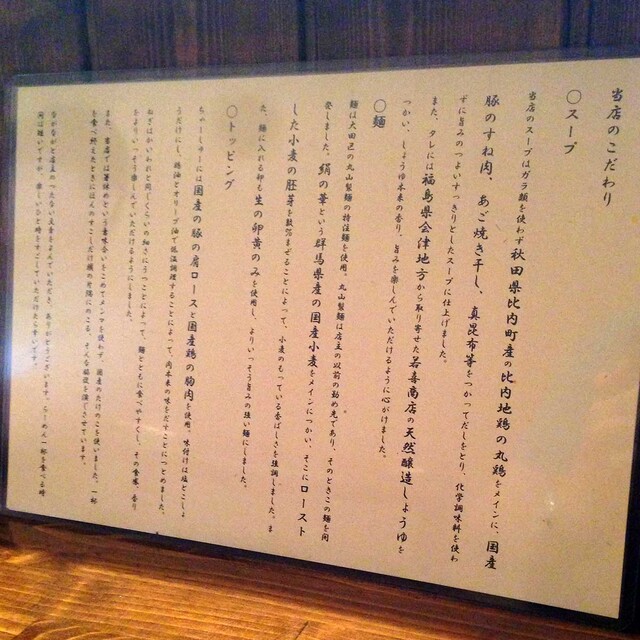 当店のこだわり
○スープ
当店のスープはガラ類を使わず秋田県比内町産の比内地鶏の丸鶏をメインに、国産
豚のすね肉、あご焼き干し、真昆布等をつかってだしをとり、化学調味料を使わ
ずに旨みのつよいすっきりとしたスープに仕上げました。
また、タレには福島県会津地方から取り寄せた若喜商店の天然醸造しょうゆを
つかい、しょうゆ本来の香り、旨みを楽しんでいただけるように心がけました。
○麺
麺は大田区の丸山製麺の特注麺を使用。丸山製麺は店主の以前の勤め先であり、そのときこの麺を開
発しました。絹の華という群馬県産の国産小麦をメインにつかい、そこにロースト
した小麦の胚芽を数％まぜることによって、小麦のもっている香ばしさを強調しました。ま
た、麺に入れる卵も生の卵黄のみを使用し、よりいっそう旨みの強い麺にしました。
○トッピング
ちゃーしゅーには国産の豚の肩ロースと国産鶏の胸肉を使用。味付けは塩とこしょ
うだけにし、鶏油とオリーブ油で低温調理することによって、肉本来の味をだすことにつとめました。
ねぎはかいわれと同じくらいの細さにうつことによって、麺とともに食べやすくし、その食感、香り
をよりいっそう楽しんでいただけるようにしました。
また、当店では箸休めという意味合いをこめてメンマを使わず、国産のたけのこを使いました。一杯
を食べ終えたときにほんのすこしだけ頭の片隅にのこる、そんな脇役を演じさせています。
ながながと店主のつたない文章をよんでいただき、ありがとうございます。らーめん一杯を食べる時
間は短いですが、楽しいひと時をすごしていただけたら幸いです。